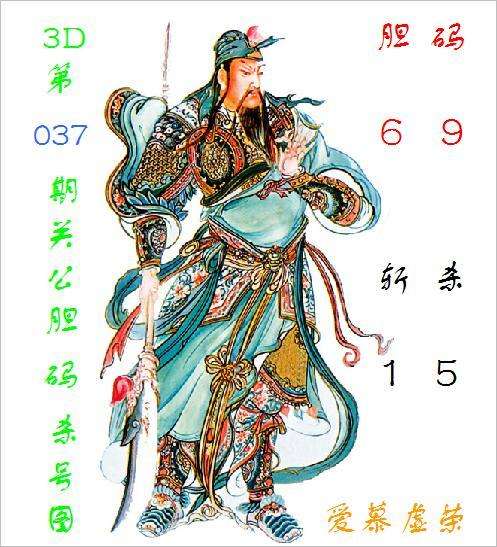 3D
第
037
期关公胆码杀号图
胆码
6 9
斩杀
1 5
爱慕虚荣